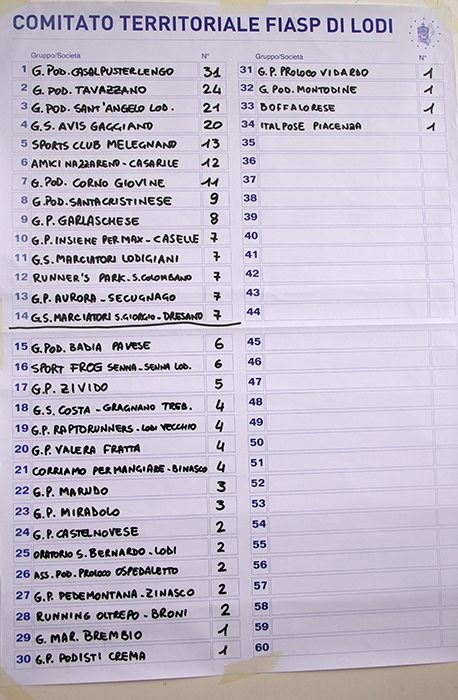 COMITATO TERRITORIALE FIASP DI LODI
Gruppo/Società N°
1 G. POD. CASALPUSTERLENGO 31
2 G. POD. TAVAZZANO 24
3 G. POD. SANT'ANGELO LOD. 21
4 G.S. AVIS GAGGIANO 20
5 SPORTS CLUB MELEGNANO 13
6 AMICI NAZZARENO - CASARILE 12
7 G. POD. CORNO GIOVINE 11
8 G. POD. SANTACRISTINESE 9
9 G.P. GARLASCHESE 8
10 G.P. INSIEME PER MAX - CASELLE 7
11 G.S. MARCIATORI LODIGIANI 7
12 RUNNER'S PARK - S. COLOMBANO 7
13 G.P. AURORA - SECUGNAGO 7
14 G.S. MARCIATORI S. GIORGIO - DRESANO 7
15 G. POD. BADIA PAVESE 6
16 SPORT FROG SENNA - SENNA LOD. 6
17 G.P. ZIVIDO 5
18 G.S. COSTA - GRAGNANO TREB. 4
19 G.P. RAPTORUNNERS - LODI VECCHIO 4
20 G.P. VALERA FRATTA 4
21 CORRIAMO PER MANGIARE - BINASCO 4
22 G.P. MARUDO 3
23 G.P. MIRADOLO 3
24 G.P. CASTELNOVESE 2
25 ORATORIO S. BERNARDO - LODI 2
26 ASS. POD. PROLOCO OSPEDALETTO 2
27 G.P. PEDEMONTANA - ZINASCO 2
28 RUNNING OLTREPO - BRONI 2
29 G. MAR. BREMBIO 1
30 G.P. PODISTI CREMA 1
Gruppo/Società N°
31 G.P. PROLOCO VIDARDO 1
32 G. POD. MONTODINE 1
33 BOFFALORESE 1
34 ITALPOSE PIACENZA 1
35
36
37
38
39
40
41
42
43
44
45
46
47
48
49
50
51
52
53
54
55
56
57
58
59
60